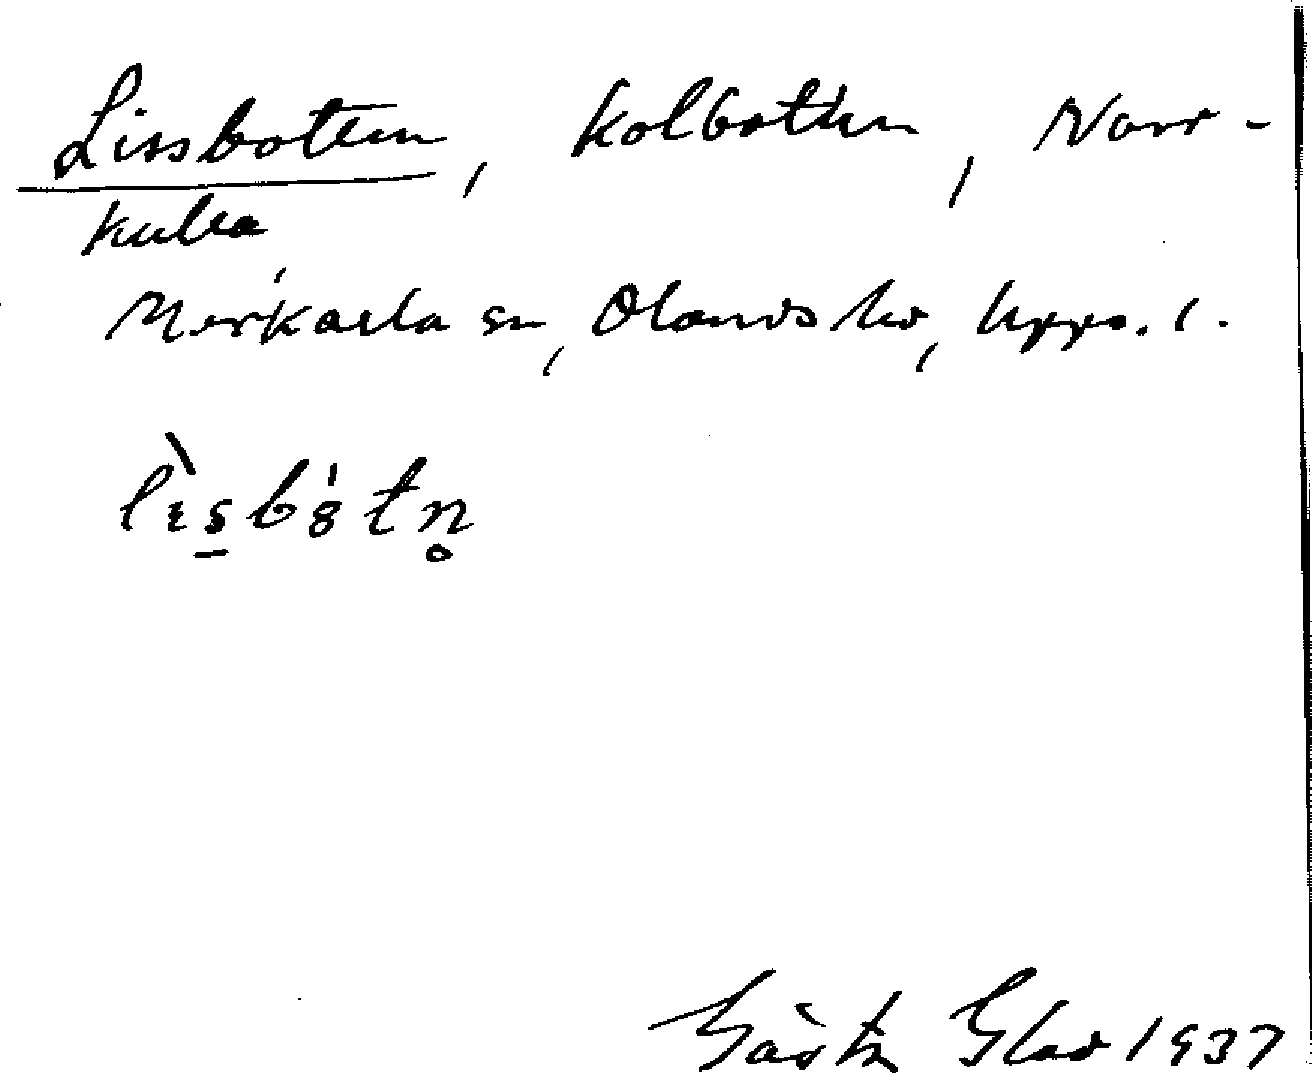 Lissbotten, kolbotten, Norr-
kulla
Morkarla sn, Olands hd, Upps. l.
lìsbótn̥
Gösta Glad 1937